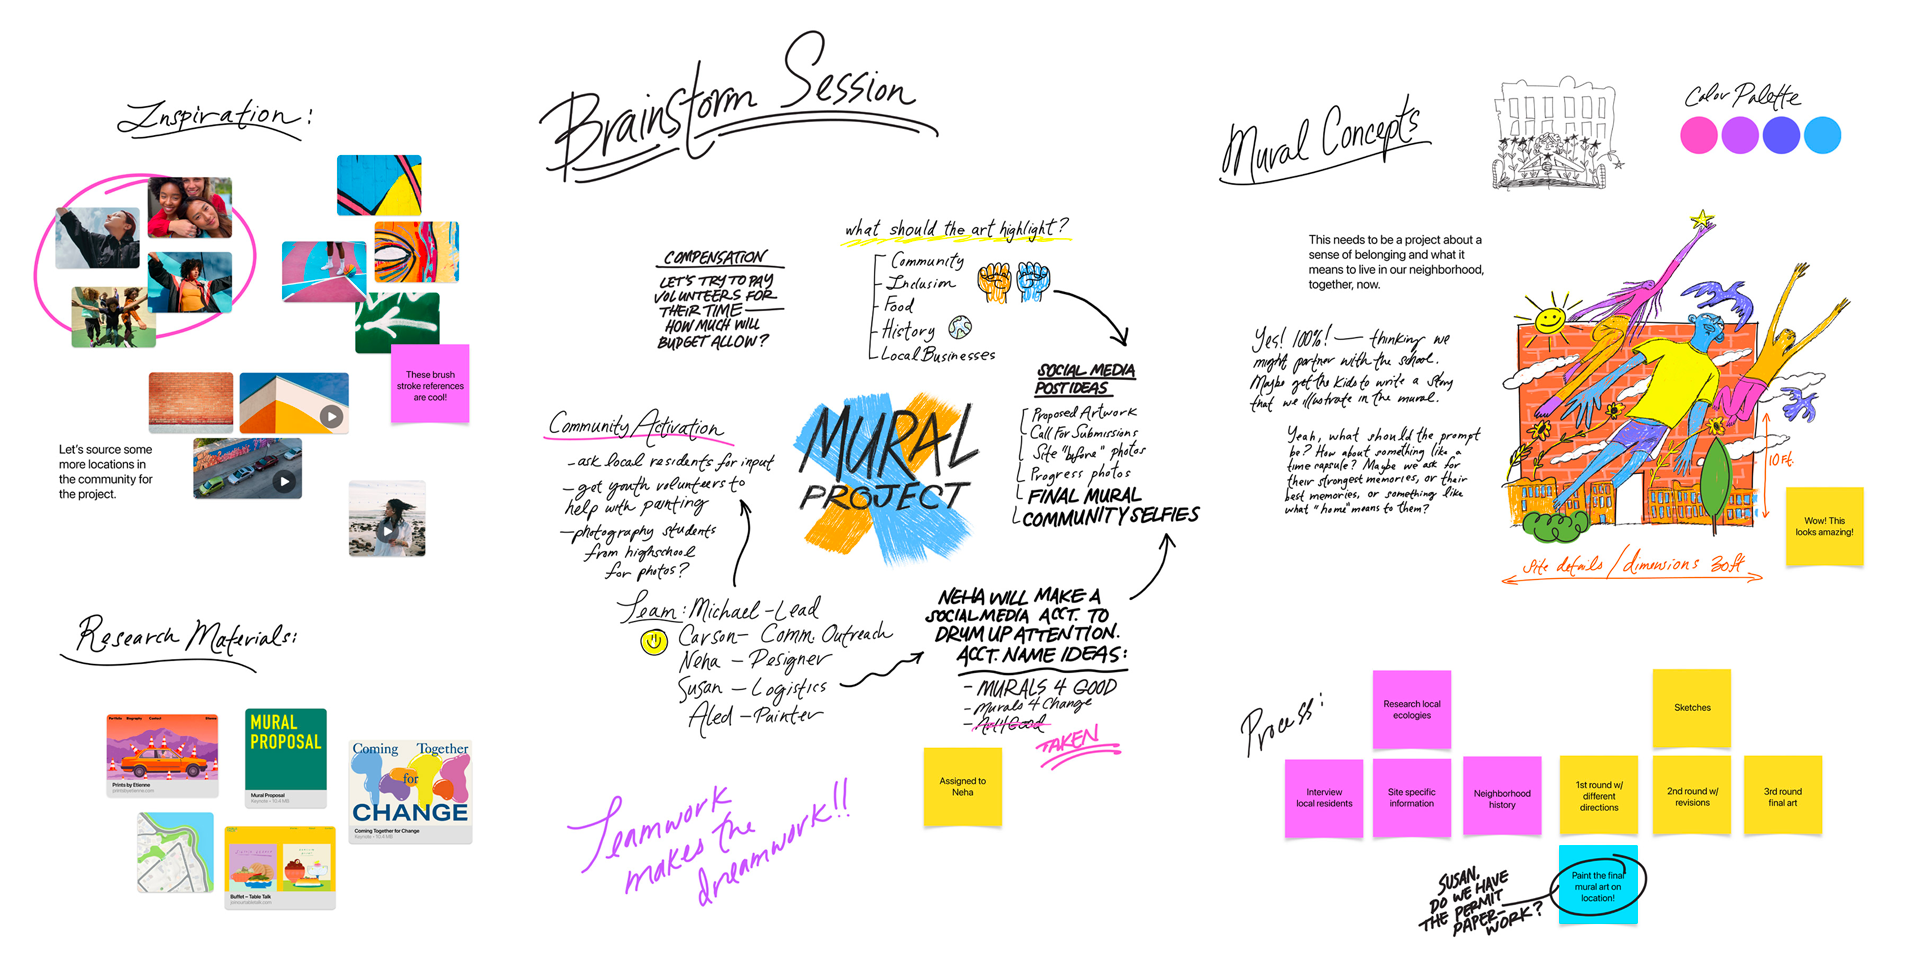 Inspiration:
These brush
stroke references
are cool!
Let's source some
more locations in
the community for
the project.
Research Materials:
Portfolio Biography Contact Etienne
Prints by Etienne
printsbyetienne.com
MURAL
PROPOSAL
Mural Proposal
Keynote • 10.4 MB
Coming Together
for
CHANGE
Coming Together for Change
Keynote • 10.4 MB
Buffet – Table Talk
joinourtabletalk.com
Brainstorm Session
COMPENSATION
LET'S TRY TO PAY
VOLUNTEERS FOR
THEIR TIME —
HOW MUCH WILL
BUDGET ALLOW?
what should the art highlight?
Community
Inclusion
Food
History
Local Businesses
SOCIAL MEDIA
POST IDEAS
Proposed Artwork
Call For Submissions
Site "before" photos
Progress photos
FINAL MURAL
COMMUNITY SELFIES
MURAL
PROJECT
Community Activation
- ask local residents for input
- get youth volunteers to
help with painting
- photography students
from highschool
for photos?
Team: Michael - Lead
Carson - Comm. Outreach
Neha - Designer
Susan - Logistics
Aled - Painter
NEHA WILL MAKE A
SOCIAL MEDIA ACCT. TO
DRUM UP ATTENTION.
ACCT. NAME IDEAS:
- MURALS 4 GOOD
- Murals 4 Change
- Art 4 Good
TAKEN
Assigned to
Neha
Teamwork
makes the
dreamwork!!
Mural Concepts
Color Palette
This needs to be a project about a
sense of belonging and what it
means to live in our neighborhood,
together, now.
Yes! 100%! — thinking we
might partner with the school.
Maybe get the kids to write a story
that we illustrate in the mural.
Yeah, what should the prompt
be? How about something like a
time capsule? Maybe we ask for
their strongest memories, or their
best memories, or something like
what "home" means to them?
10 Ft.
Site details / dimensions 30ft
Wow! This
looks amazing!
Process:
Research local
ecologies
Sketches
Interview
local residents
Site specific
information
Neighborhood
history
1st round w/
different
directions
2nd round w/
revisions
3rd round
final art
Paint the final
mural art on
location!
SUSAN,
DO WE HAVE
THE PERMIT
PAPER-
WORK?